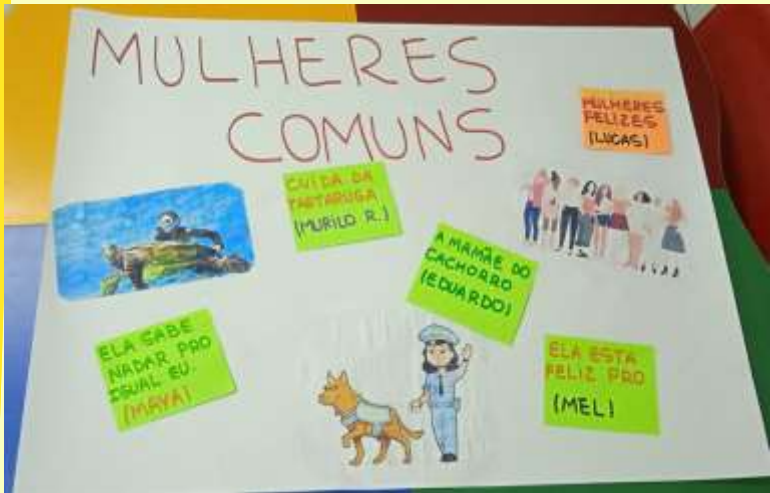 MULHERES
COMUNS
MULHERES
FELIZES
(LUCAS)
CUIDA DA
TARTARUGA
(MURILO R.)
A MAMÃE DO
CACHORRO
(EDUARDO)
ELA SABE
NADAR PRO
IGUAL EU.
(MAYA)
ELA ESTA
FELIZ PRO
(MEL)